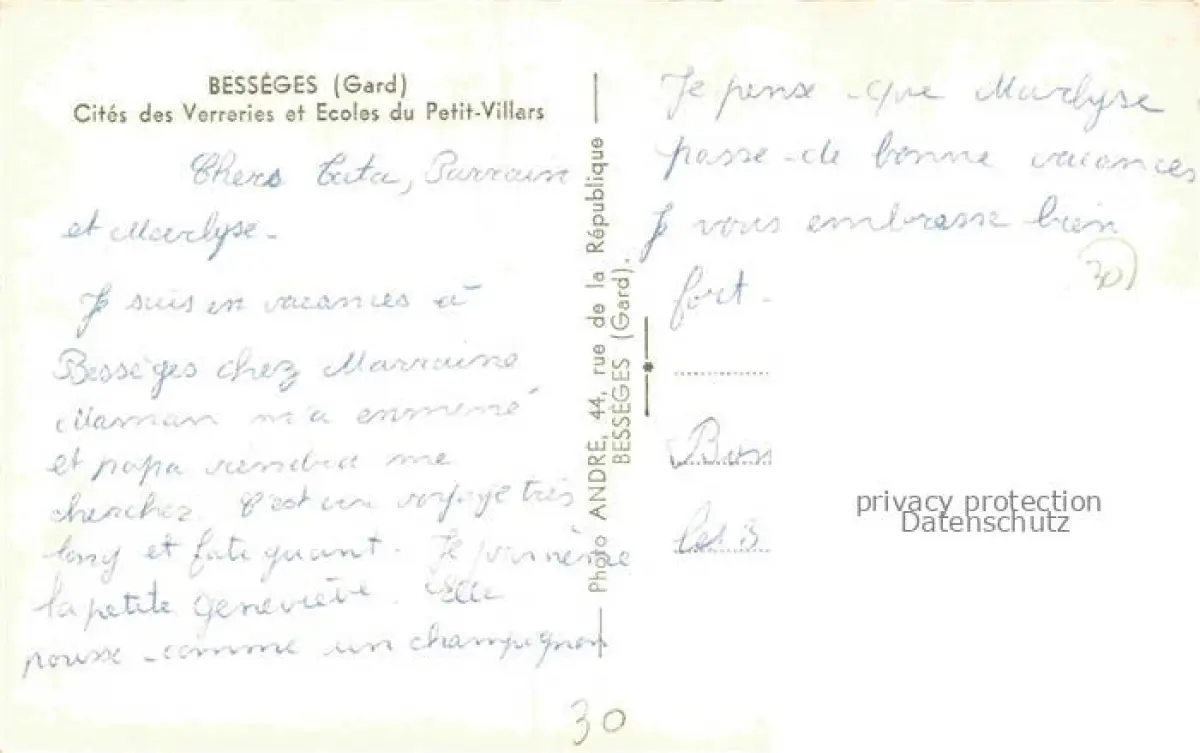 BESSÉGES (Gard)
Cités des Verreries et Ecoles du Petit-Villars
Chers Tata, Parrain
et Marlyse.
Je suis en vacances à
Bessèges chez Marraine
Maman m'a emmené
et papa viendra me
cherchez. C'est un voyage très
long et fatiguant. Je promène
la petite Geneviève. Elle
pousse comme un champignon
Photo ANDRE, 44, rue de la République
BESSÉGES (Gard).
Je pense que Marlyse
passe de bonne vacances
Je vous embrasse bien
fort.
30
Bon
les B
privacy protection
Datenschutz
30